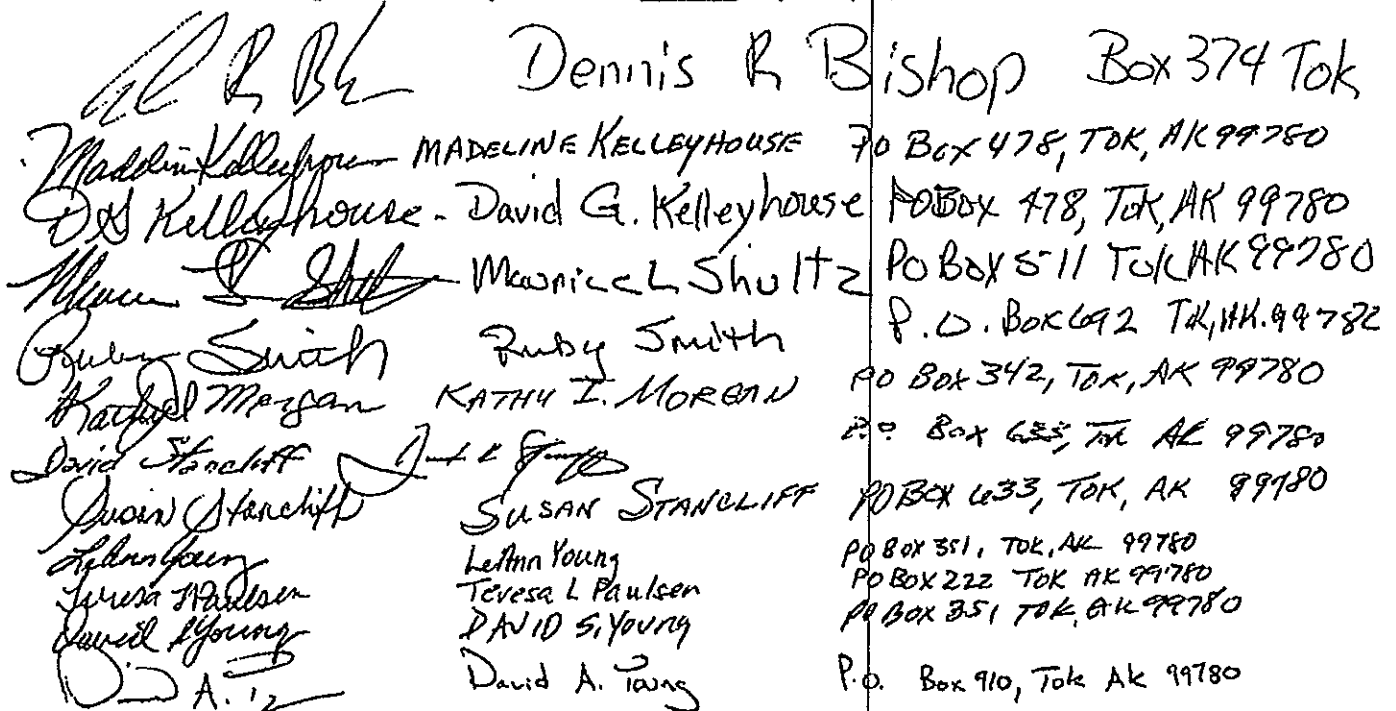 Dennis R Bishop Box 374 Tok
Madelin Kelleyhouse MADELINE KELLEYHOUSE PO Box 478, TOK, AK 99780
DG Kelleyhouse - David G. Kelleyhouse PO Box 478, Tok, AK 99780
Maurice L Shultz PO Box 511 Tok AK 99780
Ruby Smith Ruby Smith P.O. Box 692 Tok, AK. 99780
Morgan KATHY I. MORGAN PO Box 342, Tok, AK 99780
David Stancliff P.O. Box Tok AK 99780
Susan Stancliff SUSAN STANCLIFF PO BOX 633, TOK, AK 99780
LeAnn Young LeAnn Young PO Box 351, TOK, AK 99780
Teresa L Paulsen Teresa L Paulsen PO Box 222 TOK AK 99780
David S Young DAVID S. YOUNG PO Box 351 TOK, AK 99780
David A. P.O. Box 910, Tok Ak 99780